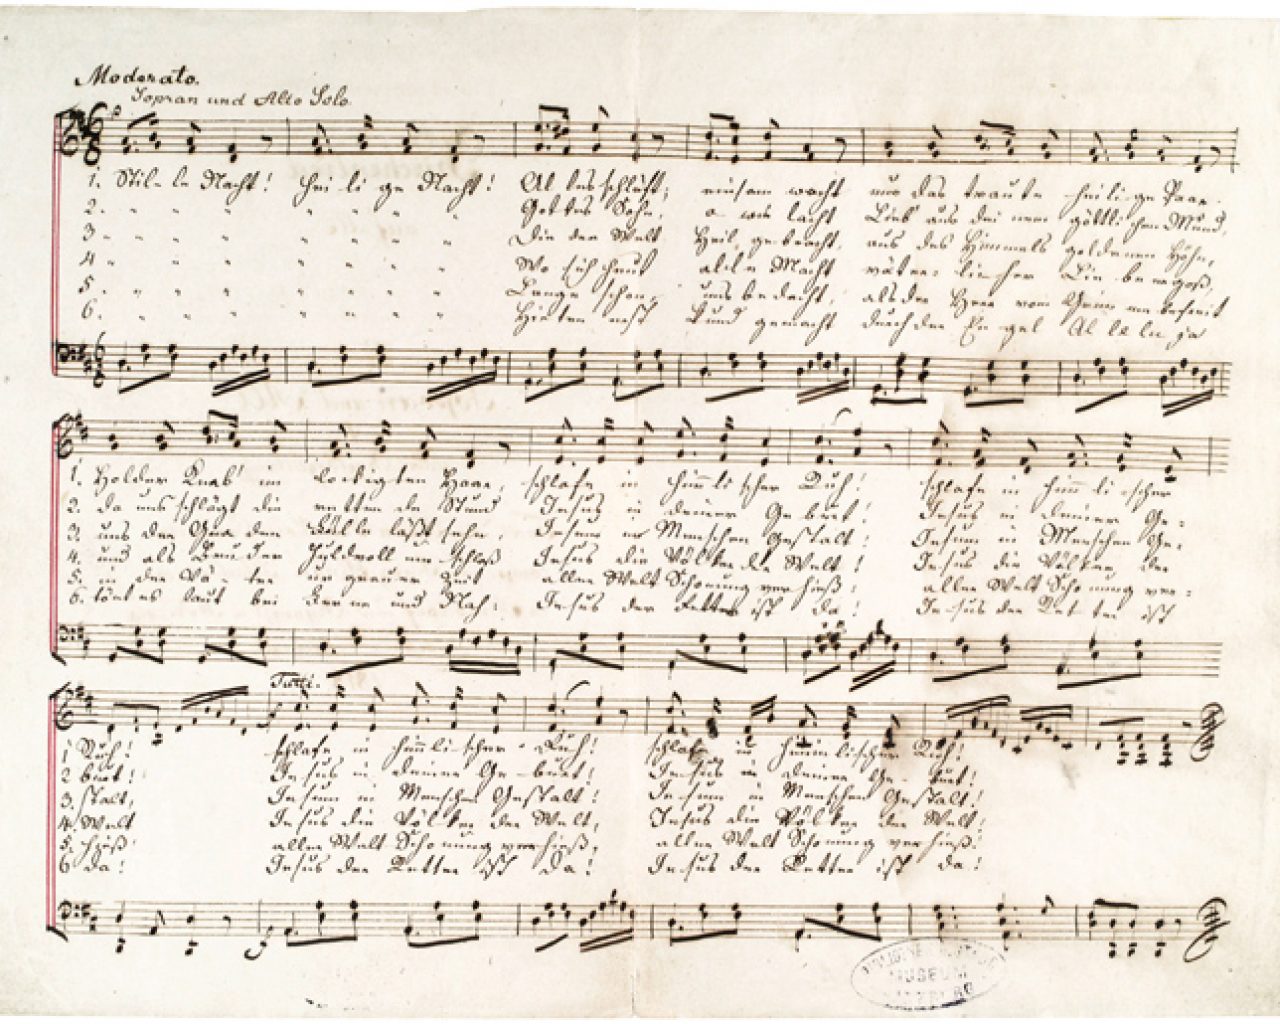 Moderato.
Sopran und Alto Solo.
1. Stil-le Nacht! Hei-li-ge Nacht! Al-les schläft; einsam wacht nur das traute heili-ge Paar.
2. " " " " " " " Gottes Sohn, o wie lacht Lieb' aus dei-nem göttli-chen Mund,
3. " " " " " " " Die der Welt Heil gebracht, aus des Himmels goldenen Höhn,
4. " " " " " " " Wo sich heut al-le Macht väter-li-cher Lie-be ergoß,
5. " " " " " " " Lange schon uns bedacht, als der Herr vom Grimm befreit
6. " " " " " " " Hirten erst kund gemacht durch der En-gel Al-le-lu-ja
1. Holder Knab' im lockigten Haar, schlafe in himmlischer Ruh! schlafe in himmli-scher
2. da uns schlägt die rettende Stund Jesus in deiner Geburt! Jesus in deiner Ge-
3. uns der Gnaden Fülle läßt sehn, Jesum in Menschen Gestalt! Jesum in Menschen Ge-
4. und als Bruder huldvoll umschloß Jesus die Völker der Welt! Jesus die Völker der
5. in der Vä-ter urgrauer Zeit aller Welt Schonung verhieß! aller Welt Schonung ver-
6. tönt es laut bei Ferne und Nah: Jesus der Retter ist da! Jesus der Retter ist
Tutti.
1 Ruh! schlafe in himmlischer Ruh! schlafe in himmlischer Ruh!
2 burt! Jesus in deiner Ge-burt! Jesus in deiner Ge-burt!
3. stalt, Jesum in Menschen Gestalt! Jesum in Menschen Gestalt!
4. Welt Jesus die Völker der Welt, Jesus die Völker der Welt!
5. hieß! aller Welt Schonung verhieß, aller Welt Schonung verhieß!
6 da! Jesus der Retter ist da! Jesus der Retter ist da!
MUSEUM